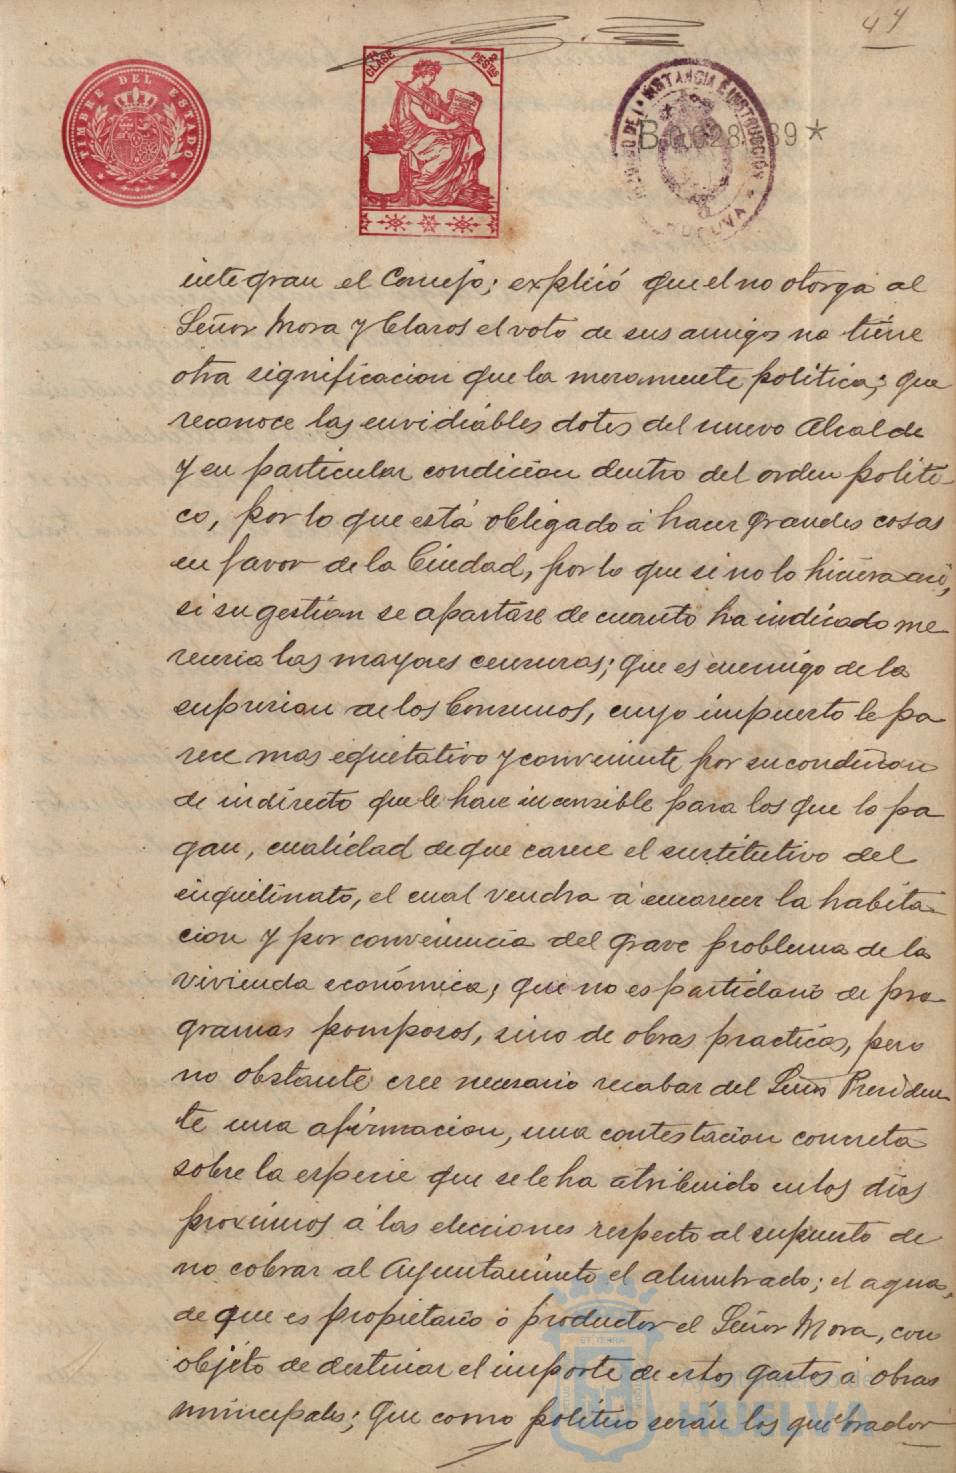 47
TIMBRE DEL ESTADO
CLASE
2 PESTAS
JUZGADO DE 1ª INSTANCIA E INSTRUCCIÓN
B
integran el Concejo; explicó que el no otorga al
Señor Mora y Claros el voto de sus amigos no tiene
otra significacion que la meramente politica; que
reconoce las envidiables dotes del nuevo Alcalde
y en particular condicion dentro del orden politi-
co, por lo que está obligado á hacer grandes cosas
en favor de la Ciudad, por lo que si no lo hiciera asi,
si su gestion se apartase de cuanto ha indicado me
receria las mayores censuras; que es enemigo de la
supresion de los Consumos, cuyo impuesto le pa
rece mas equitativo y conveniente por su condicion
de indirecto que le hace insensible para los que lo pa
gan, cualidad de que carece el sustitutivo del
inquilinato, el cual vendra á encarecer la habita-
cion y por convenencia del grave problema de la
vivienda económica; que no es partidario de pro-
gramas pomposos, sino de obras practicas, pero
no obstante cree necesario recabar del Señor Presiden-
te una afirmacion, una contestacion concreta
sobre la especie que se le ha atribuido en los dias
proximos á las elecciones respecto al supuesto de
no cobrar al Ayuntamiento el alumbrado; el agua,
de que es propietario ó productor el Señor Mora, con
objeto de destinar el importe de estos gastos á obras
municipales; que como politico serán los quebrador
Ayuntamiento de
HUELVA